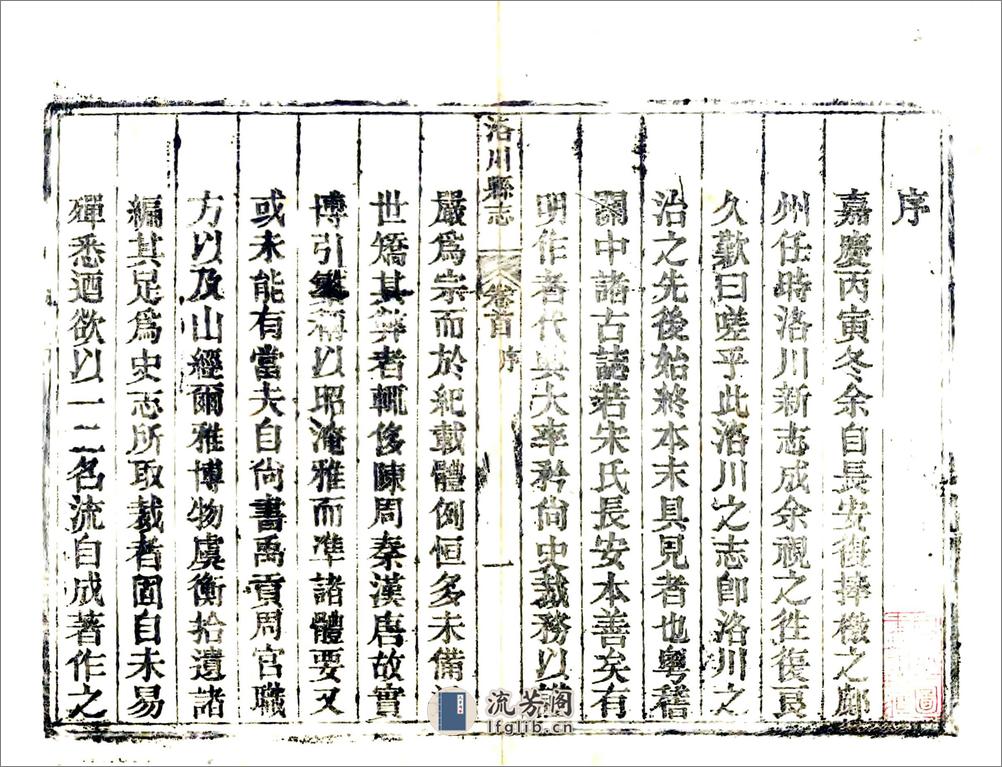 序
嘉慶丙寅冬余自長安復捧檄之鄜
州任時洛川新志成余視之徃復亙
久歎曰嗟乎此洛川之志卽洛川之
治之先後始終本末具見者也粤稽
關中諸古誌若宋氏長安本善矣有
明作者代興大率矜尙史裁務以
洛川縣志 卷首 序 一
嚴爲宗而於紀載體例恒多未備
世矯其弊者輒侈陳周秦漢唐故實
博引繁稱以昭淹雅而準諸體要又
或未能有當夫自尙書禹貢周官職
方以及山經爾雅博物虞衡拾遺諸
編其足爲史志所取裁者固自未易
殫悉迺欲以一二名流自成著作之
流芳閣
lfglib.cn